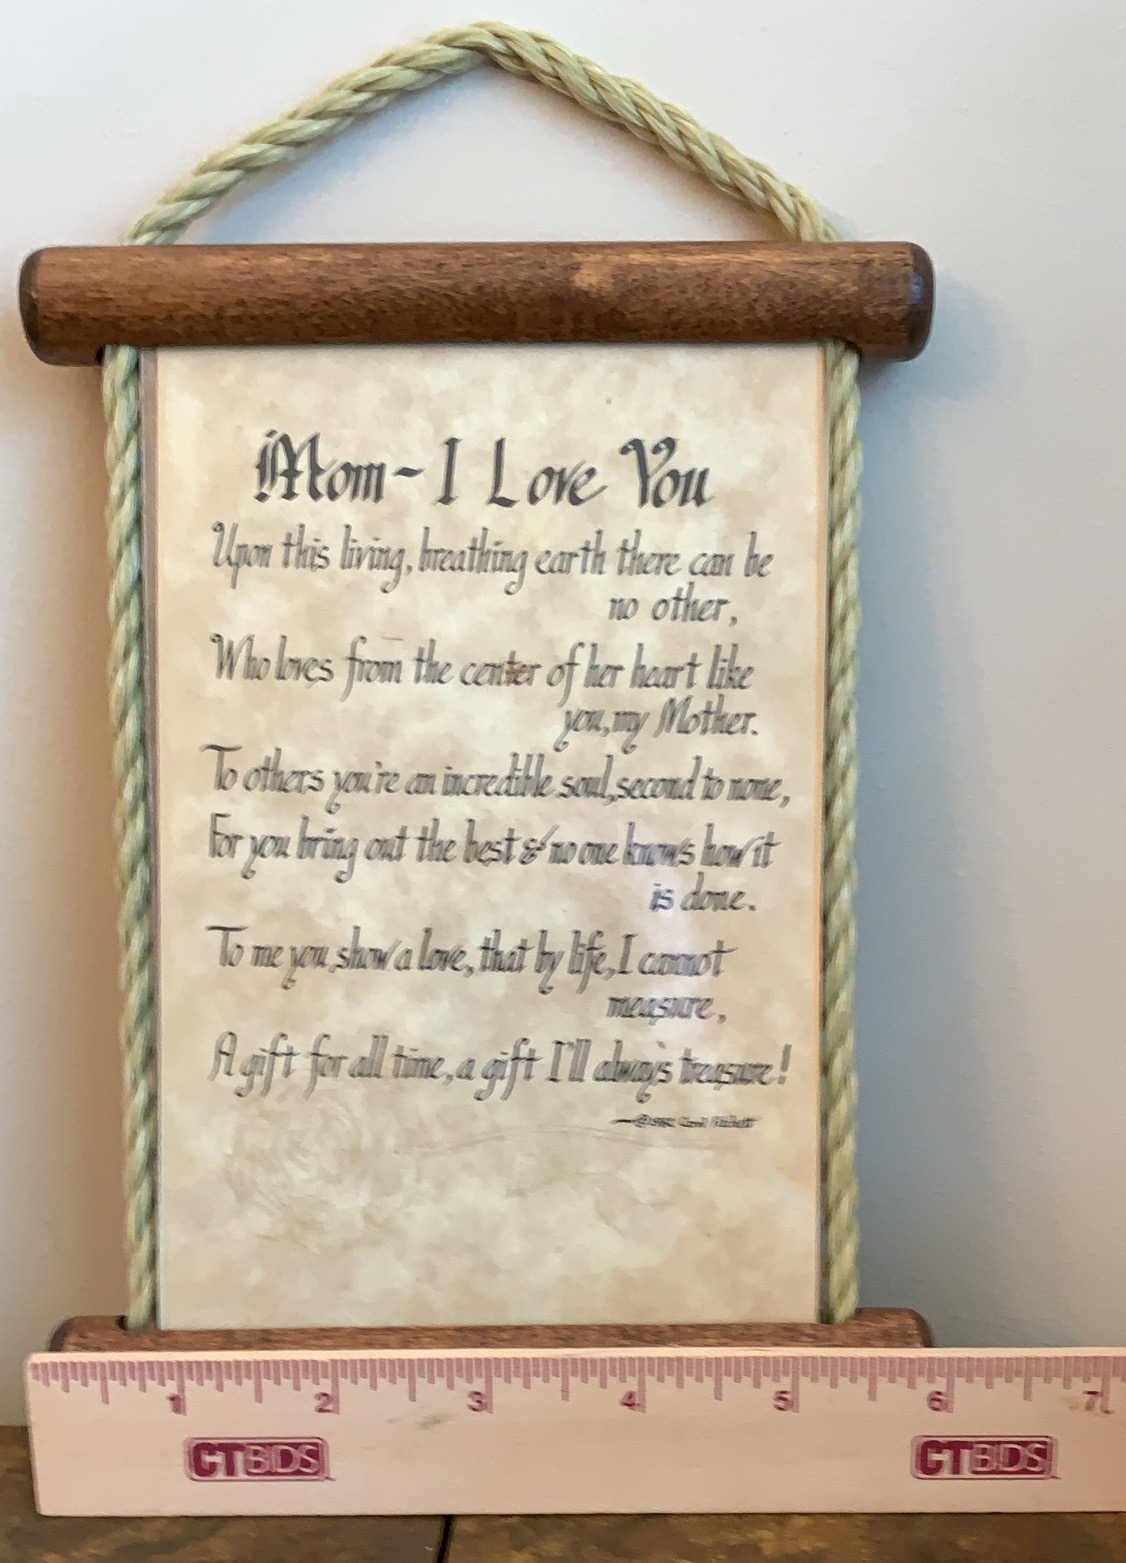 Mom~I Love You
Upon this living, breathing earth there can be
no other,
Who loves from the center of her heart like
you, my Mother.
To others you're an incredible soul, second to none,
For you bring out the best & no one knows how it
is done.
To me you show a love, that by life, I cannot
measure,
A gift for all time, a gift I'll always treasure!
1 2 3 4 5 6 7
CTBIDS CTBIDS